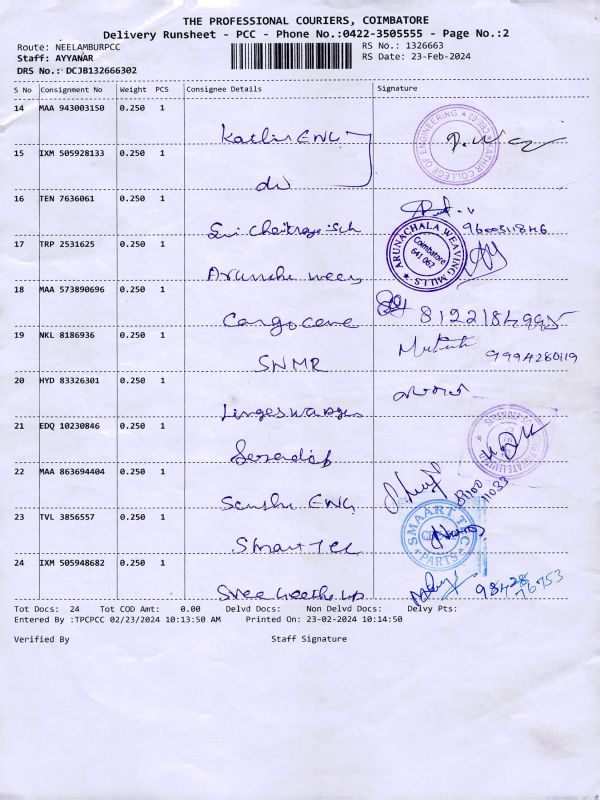 THE PROFESSIONAL COURIERS, COIMBATORE
Delivery Runsheet - PCC - Phone No.:0422-3505555 - Page No.:2
Route: NEELAMBURPCC
RS No.: 1326663
Staff: AYYANAR
RS Date: 23-Feb-2024
DRS No.: DCJB132666302
S No Consignment No Weight PCS Consignee Details Signature
14 MAA 943003150 0.250 1
Kathir ENG
COLLEGE OF ENGINEERING
15 IXM 505928133 0.250 1
do
16 TEN 7636061 0.250 1
Sri Chaitanya Sch
9600511846
17 TRP 2531625 0.250 1
ARUNACHALA WEAVING MILLS
Coimbatore
641 062
18 MAA 573890696 0.250 1
Cargocare
8122184995
19 NKL 8186936 0.250 1
SNMR
9994280119
20 HYD 83326301 0.250 1
21 EDQ 10230846 0.250 1
22 MAA 863694404 0.250 1
ENG
23 TVL 3856557 0.250 1
Smart Tec
SMAART TEC
PARTS
24 IXM 505948682 0.250 1
Sree
98428
76953
Tot Docs: 24 Tot COD Amt: 0.00 Delvd Docs: Non Delvd Docs: Delvy Pts:
Entered By :TPCPCC 02/23/2024 10:13:50 AM Printed On: 23-02-2024 10:14:50
Verified By Staff Signature